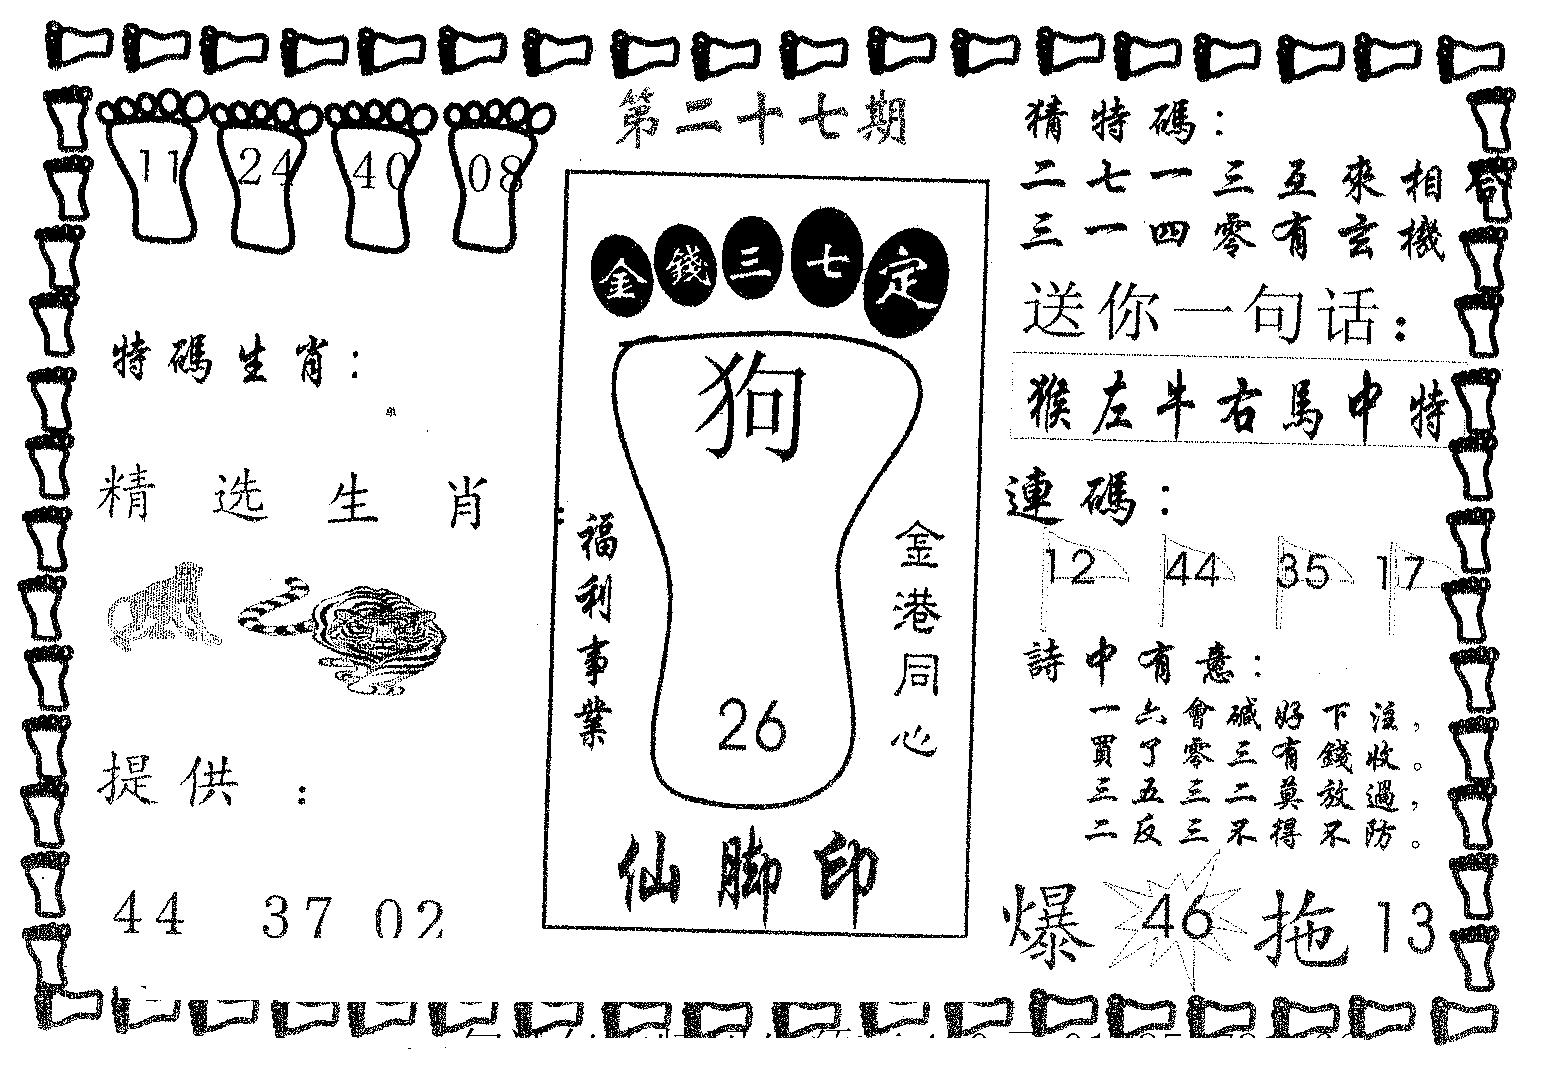 第二十七期
11 24 40 08
特碼生肖：
精选生肖：
提供：
44 37 02
金錢三七定
狗
福利事業
金港同心
26
仙脚印
猜特碼：
二七一三互來相
三一四零有玄機
送你一句话：
猴左牛右馬中特
連碼：
12 44 35 17
詩中有意：
一六會碱好下注，
買了零三有錢收。
三五三二莫放過，
二反三不得不防。
爆 46 拖 13